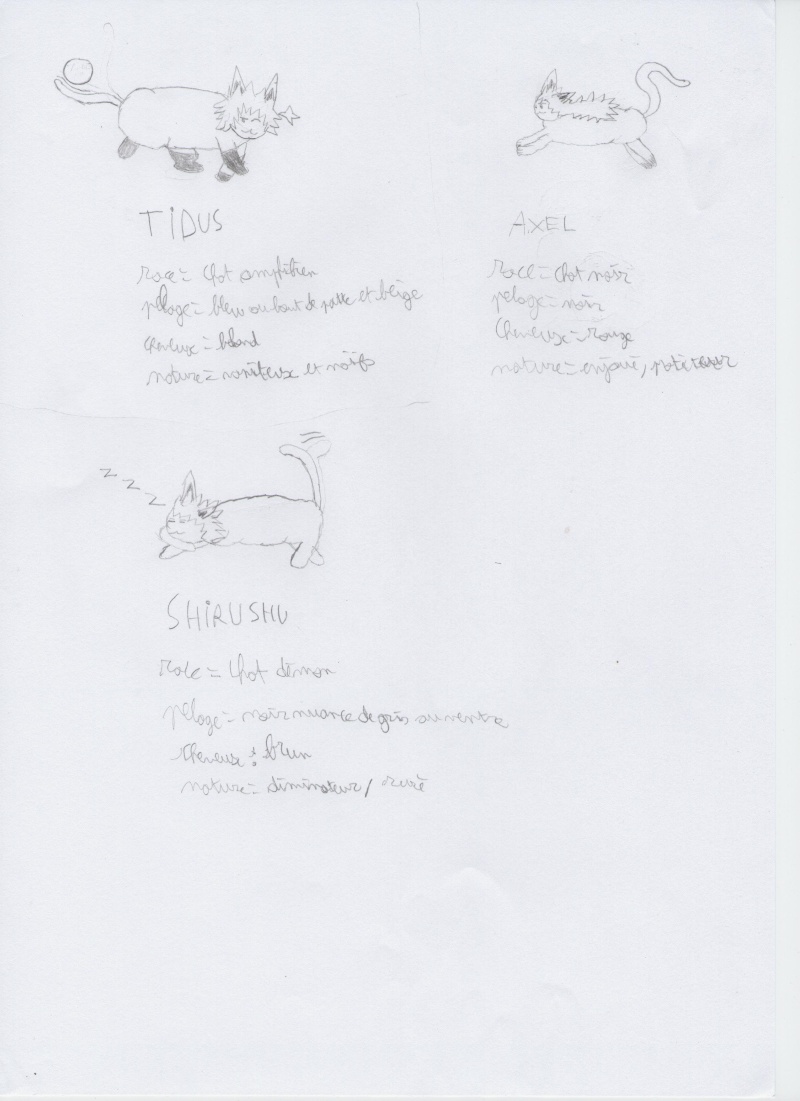 TIDUS
race = chat amphibien
pelage = bleu au bout de patte et beige
cheveux = blond
nature = et naïf
AXEL
race = chat noir
pelage = noir
cheveux = rouge
nature = enjoué,
z z z
SHIRUSHU
race = chat démon
pelage = noir nuance de gris au ventre
cheveux : brun
nature = diminateur / rusé